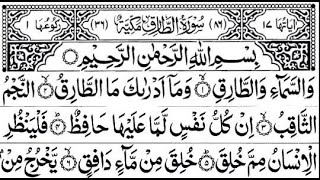 اٰیَاتُهَا ١٧ (٨٦) سُوْرَةُ الطَّارِقِ مَكِّيَّةٌ (٣٦) رُكُوْعُهَا ١
بِسْمِ اللّٰهِ الرَّحْمٰنِ الرَّحِيْمِ
وَالسَّمَآءِ وَالطَّارِقِ ۙ﴿١﴾ وَمَآ اَدْرٰىكَ مَا الطَّارِقُ ۙ﴿٢﴾ النَّجْمُ
الثَّاقِبُ ۙ﴿٣﴾ اِنْ كُلُّ نَفْسٍ لَّمَّا عَلَيْهَا حَافِظٌ ؕ﴿٤﴾ فَلْيَنْظُرِ
الْاِنْسَانُ مِمَّ خُلِقَ ؕ﴿٥﴾ خُلِقَ مِنْ مَّآءٍ دَافِقٍ ۙ﴿٦﴾ يَّخْرُجُ مِنْۢ